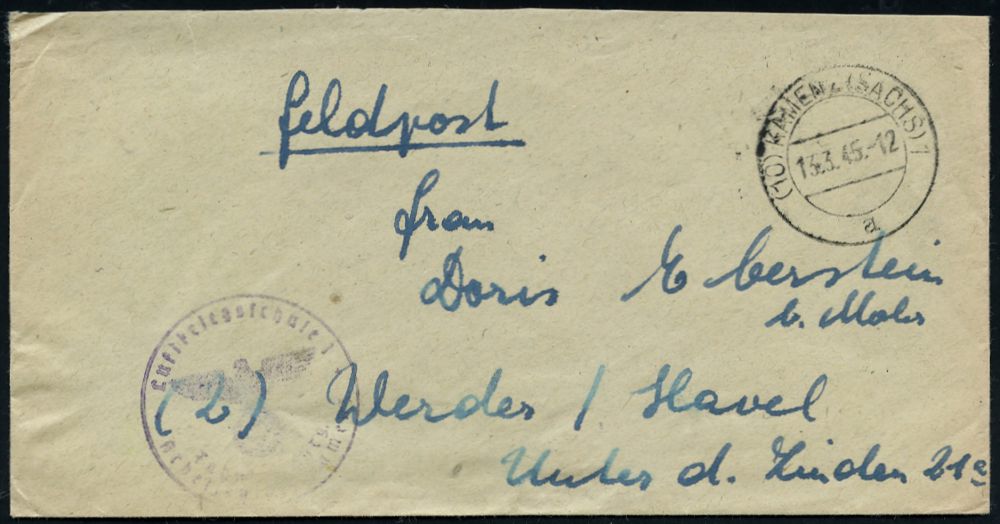 Feldpost
(10) KAMENZ (SACHS) 1
13.3.45.-12
a
Frau
Doris Eberstein
b. Mohr
Luftkriegsschule 1
(2) Werder / Havel
Unter d. Linden 21a